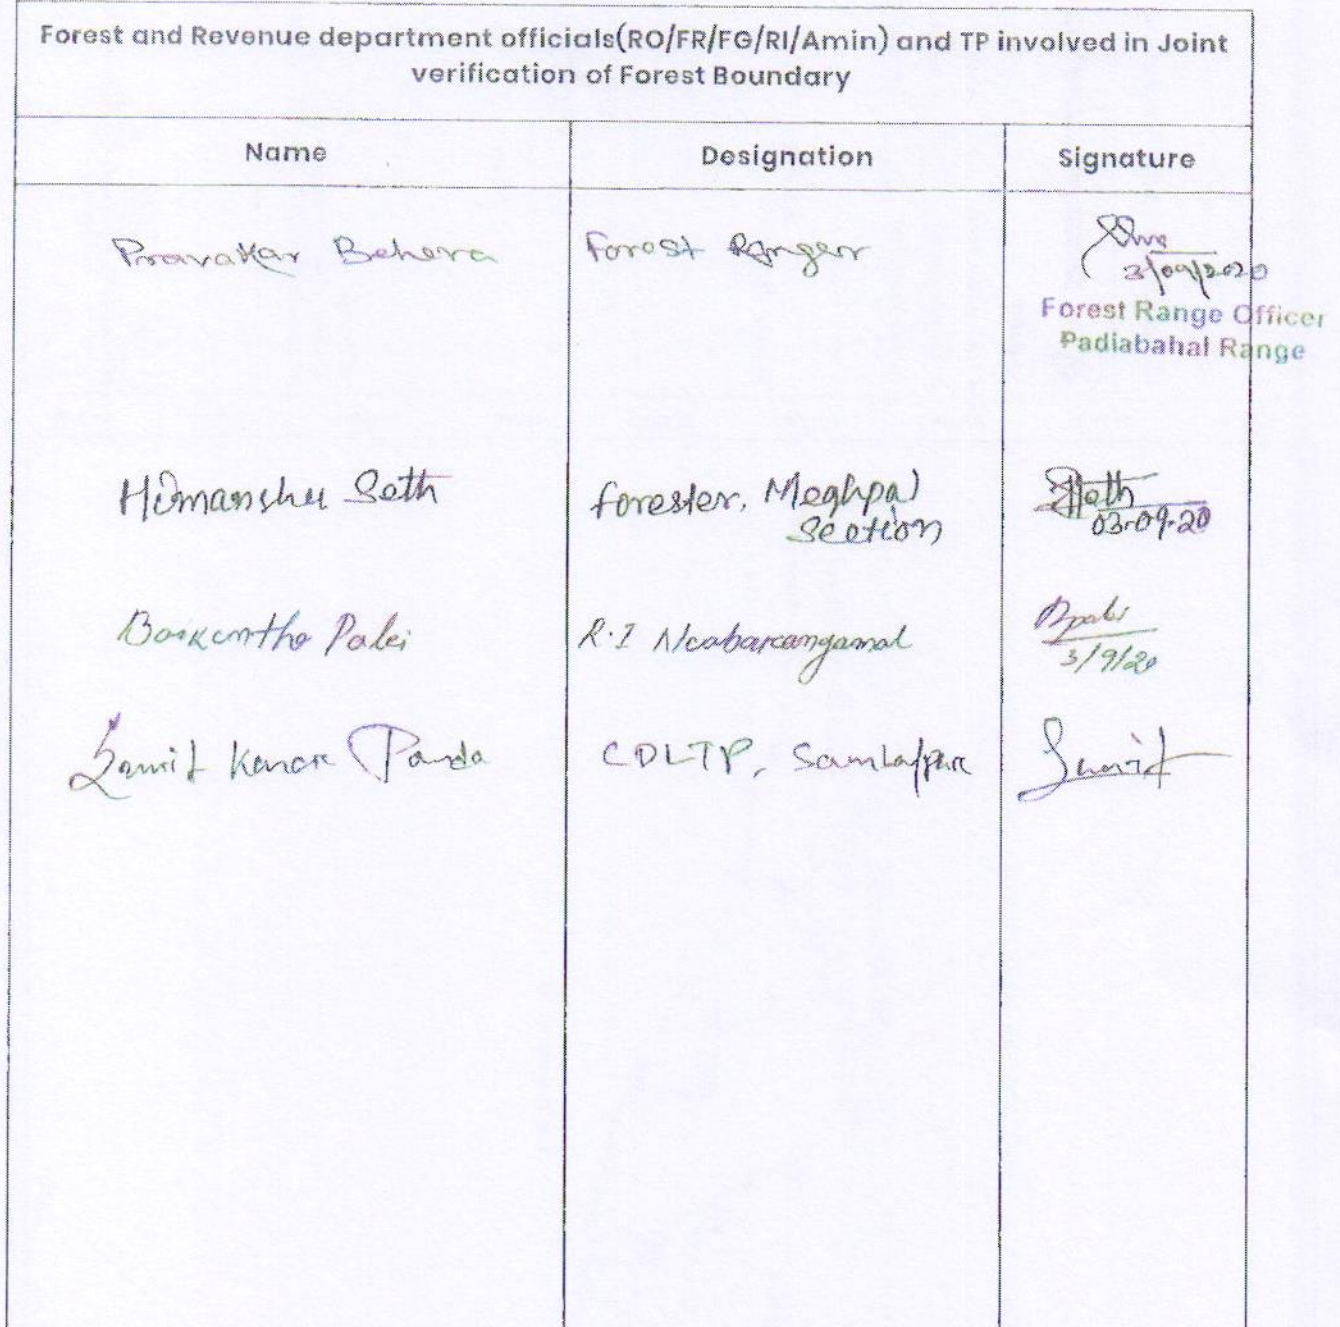 Forest and Revenue department officials(RO/FR/FG/RI/Amin) and TP involved in Joint
verification of Forest Boundary
Name Designation Signature
Pravakar Behera Forest Ranger
3/09/2020
Forest Range Officer
Padiabahal Range
Himanshu Seth Forester, Meghpal
Section
03-09-20
Palei R.I
3/9/20
Panda CDLTP, Sambalpur